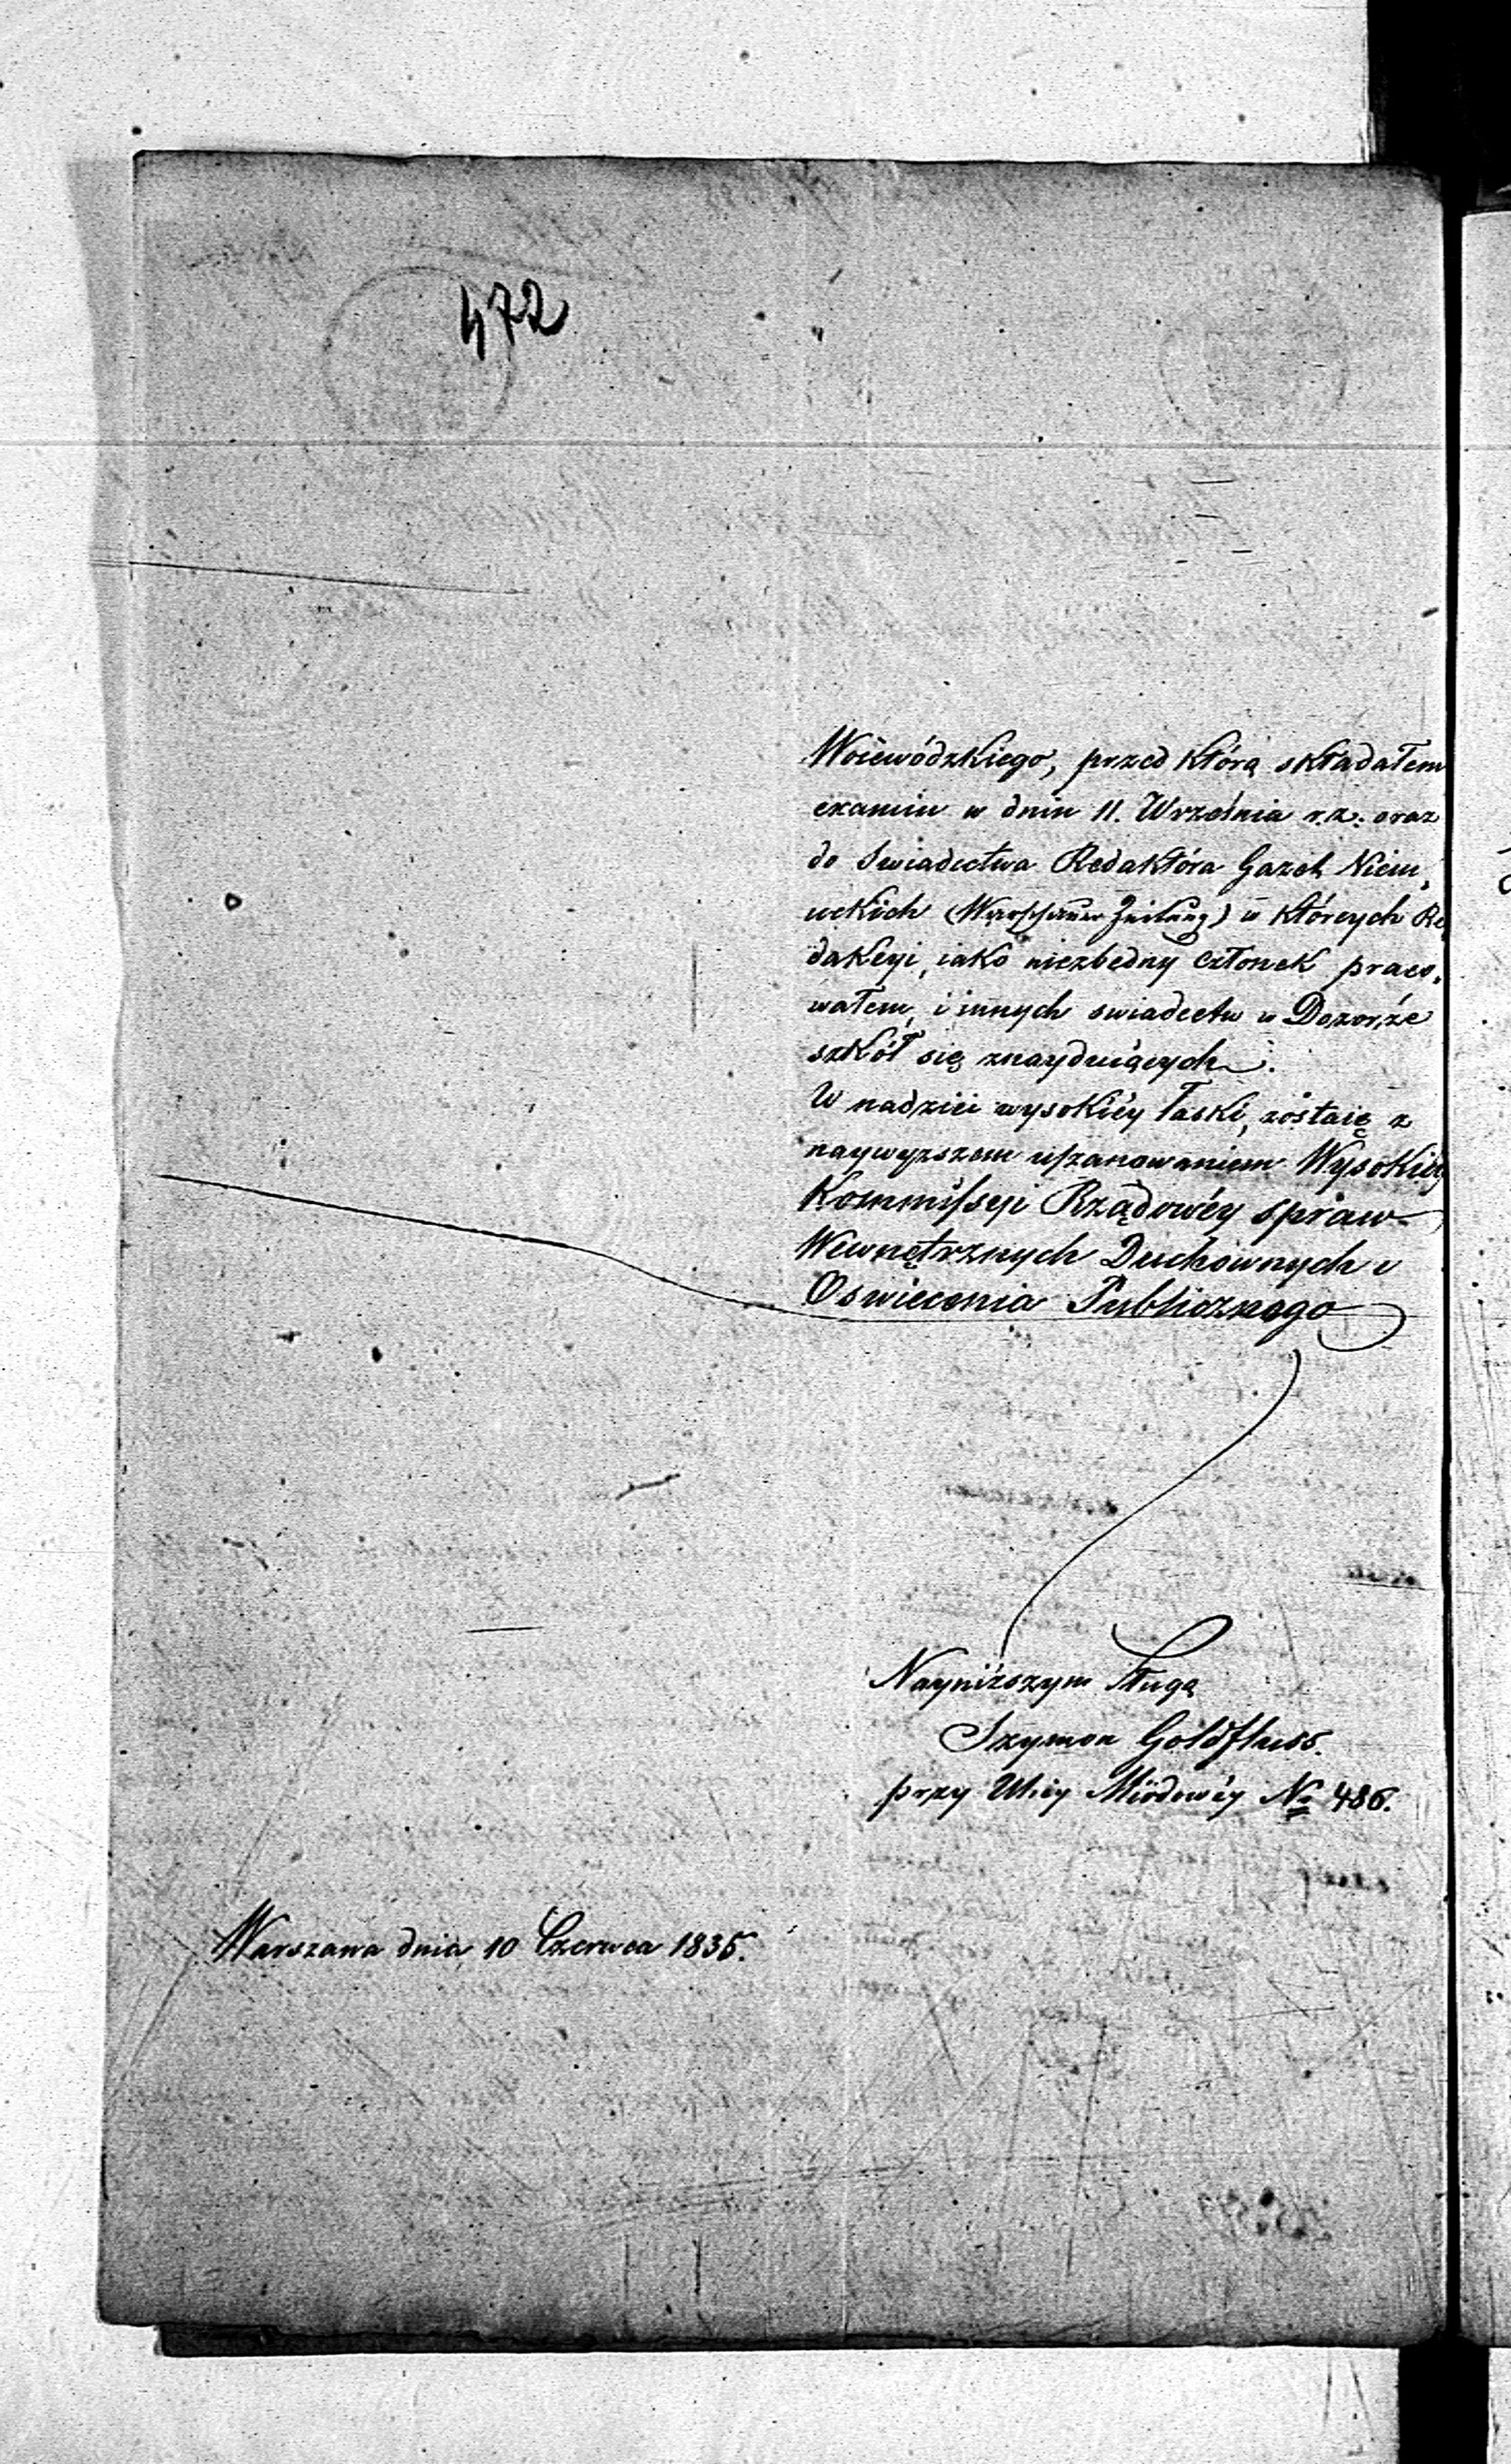 472
Woiewódzkiego, przed którą składałem
examin w dniu 11. Września r.z. oraz
do świadectwa Redaktóra Gazet Niem„
ieckich (Warschauer Zeitung) w których Re„
dakcyi, iako niezbędny członek praco„
wałem, i innych swiadectw w Dozorźe
szkół się znayduiących.
W nadziei wysokiéy łaski, zostaię z
naywyzszem uszanowaniem Wysokiéy
Kommissyi Rządowéy spraw
Wewnętrznych Duchownych i
Oswiecenia Publicznego
Nayniższym Sługą
Szymon Goldfluss.
przy Ulicy Miodowéy No 486.
Warszawa dnia 10 Czerwca 1835.